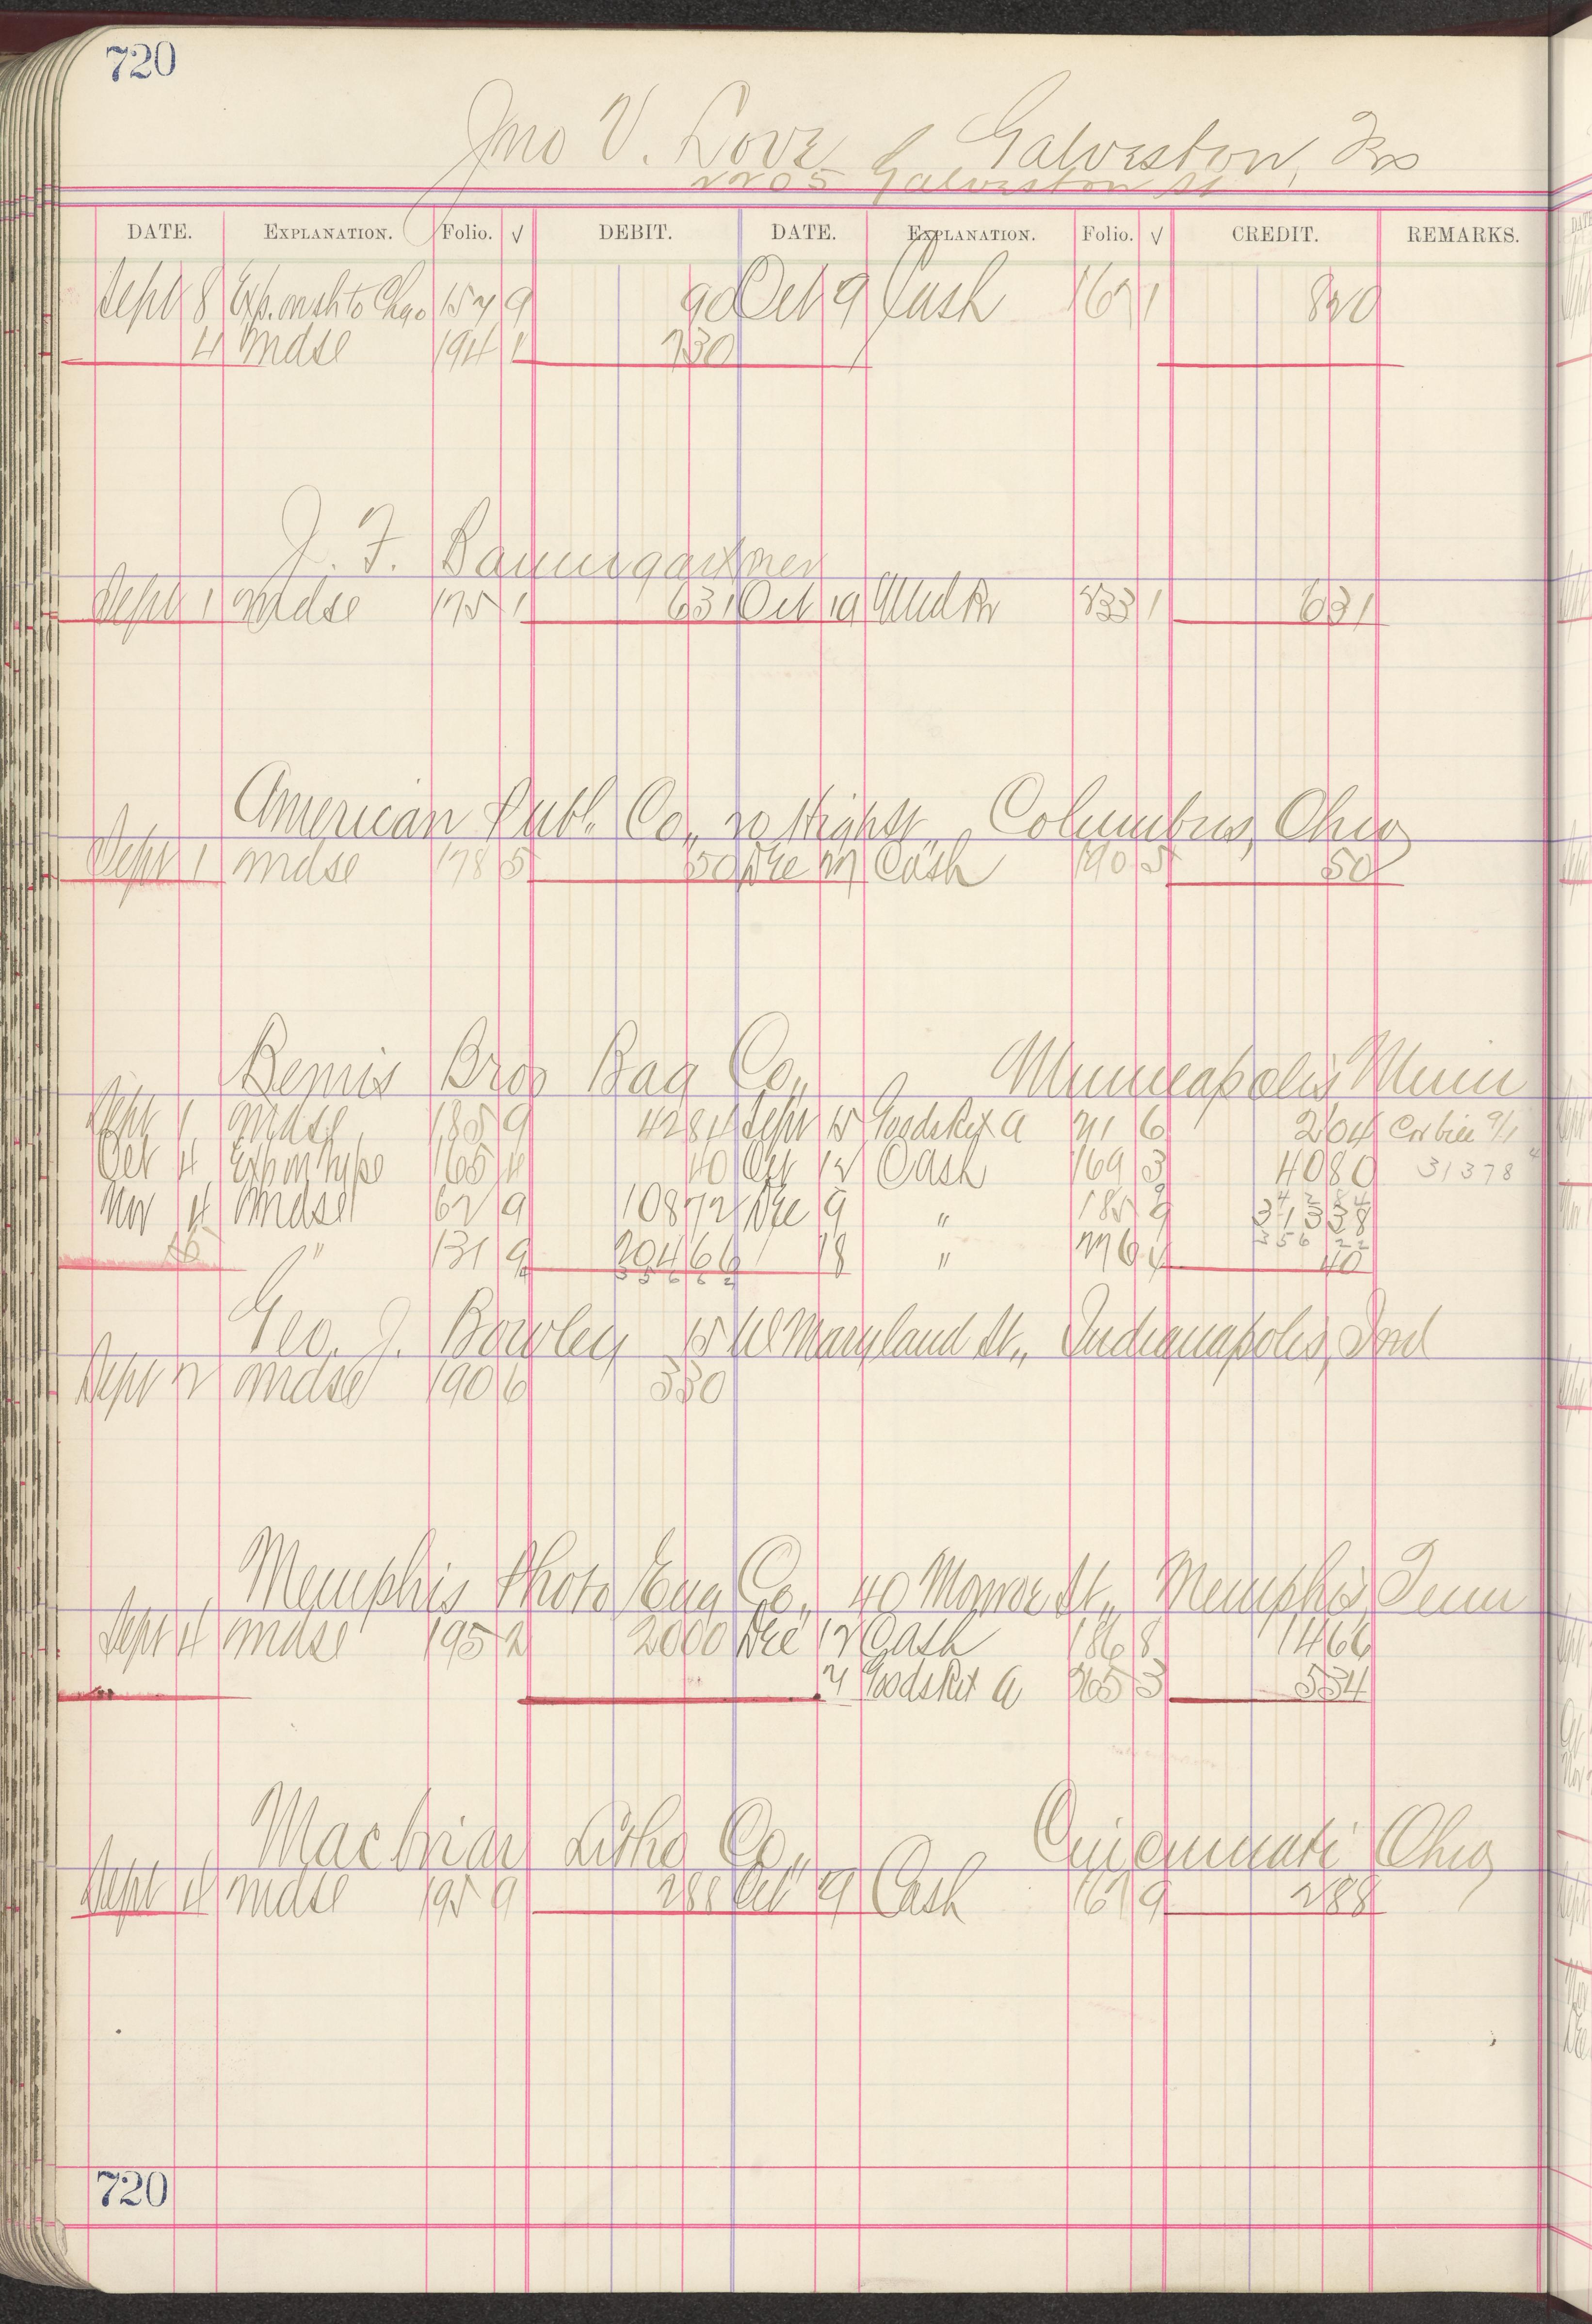 720
Jno V. Love, Galveston, Tex
2205 Galveston St
DATE. EXPLANATION. Folio. √ DEBIT. DATE. EXPLANATION. Folio. √ CREDIT. REMARKS.
Sept 8 Exp. on sh to Chgo 157 9 90 Oct 9 Cash 167 1 820
4 Mdse 194 1 730
J. F. Baumgartner
Sept 1 Mdse 175 1 631 Oct 19 833 1 631
American Publ. Co., 20 High St., Columbus, Ohio
Sept 1 Mdse 178 5 50 Dec 17 Cash 190 5 50
Bemis Bros Bag Co., Minneapolis Minn
Sept 1 Mdse 185 9 4284 Sept 15 Goods Ret a 211 6 204 Cor bill 9/1
Oct 4 Exp on type 165 4 40 Oct 12 Cash 169 3 4080 31378
Nov 4 Mdse 62 9 10872 Dec 9 " 185 9
" 131 9 20466 18 " 40
Geo. J. Bowley 15 W Maryland St., Indianapolis, Ind
Sept 2 Mdse 190 6 550
Memphis Photo Eng Co., 40 Monroe St., Memphis, Tenn
Sept 4 Mdse 195 2 2000 Dec 12 Cash 186 8 1466
Goods Ret a 265 3 534
Macbriar Litho Co., Cincinnati Ohio
Sept 4 Mdse 195 9 288 Oct 9 Cash 167 9 288
720